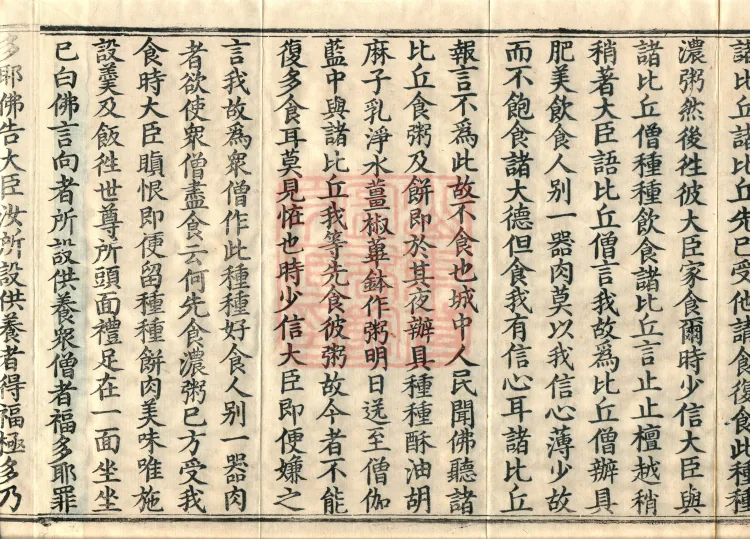 諸比丘諸比丘先已受他請食後食此種種
濃粥然後往彼大臣家食爾時少信大臣與
諸比丘僧種種飲食諸比丘言止止檀越稍
稍著大臣語比丘僧言我故為比丘僧辦具
肥美飲食人別一器肉莫以我信心薄少故
而不飽食諸大德但食我有信心耳諸比丘
報言不為此故不食也城中人民聞佛聽諸
比丘食粥及餅即於其夜辦具種種酥油胡
麻子乳淨水薑椒蓽鉢作粥明日送至僧伽
藍中與諸比丘我等先食彼粥故今者不能
復多食耳莫見恠也時少信大臣即便嫌之
言我故為眾僧作此種種好食人別一器肉
者欲使眾僧盡食云何先食濃粥已方受我
食時大臣瞋恨即便留種種餅肉美味唯施
設羹及飯徃世尊所頭面禮足在一面坐坐
已白佛言向者所設供養眾僧者福多耶罪
多耶佛告大臣汝所設供養者得福極多乃